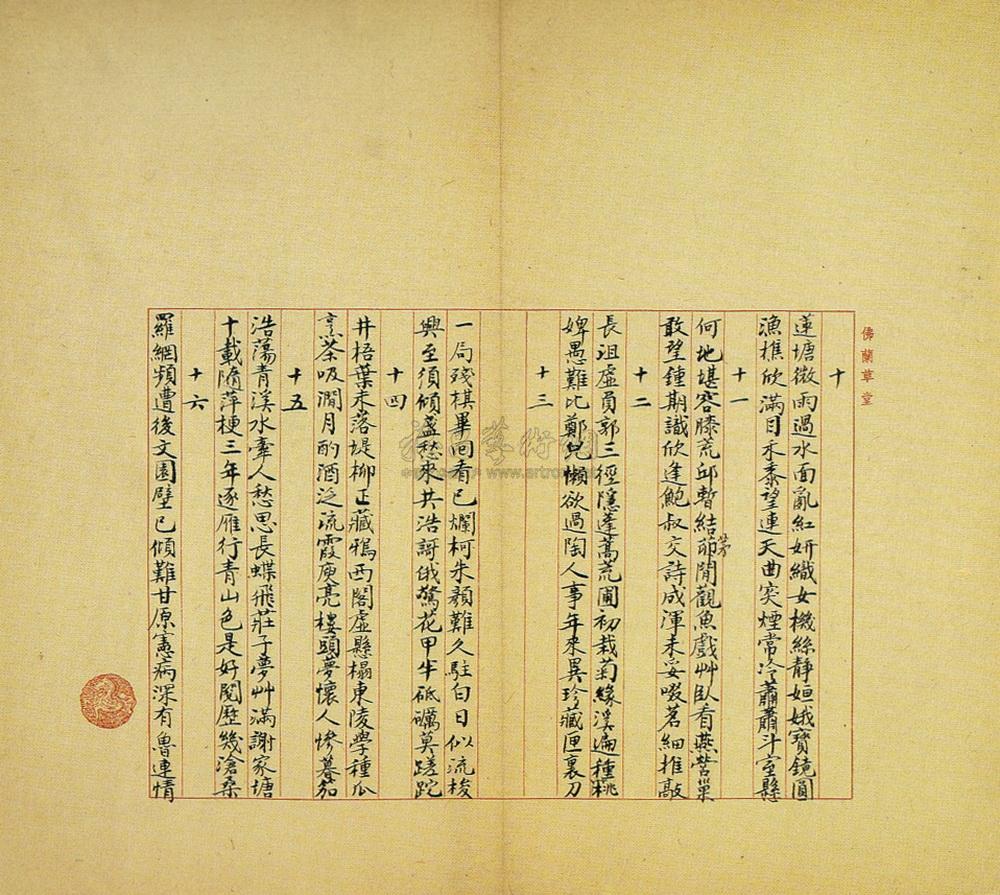 佛蘭草
十
蓮塘微雨過水面亂紅妍織女機絲靜姮娥寶鏡圓
漁樵欣滿目禾黍望連天曲突煙常冷蕭蕭斗室懸
十一
何地堪容膝荒邱暫結茆閒觀魚戲艸臥看燕營巢
茅
敢望鍾期識欣逢鮑叔交詩成渾未妥啜茗細推敲
十二
長沮虛負郭三徑隱蓬蒿荒圃初栽菊緣溪遍種桃
婢愚難比鄭兒懶欲過陶人事年來異珍藏匣裏刀
十三
一局殘棋畢回看已爛柯朱顏難久駐白日似流梭
興至須傾盞愁來共浩謌俄驚花甲半砥礪莫蹉跎
十四
井梧葉未落堤柳正藏鴉西閣虛懸榻東陵學種瓜
烹茶吸澗月酌酒泛流霞庾亮樓頭夢懷人慘暮笳
十五
浩蕩青溪水牽人愁思長蝶飛莊子夢艸滿謝家塘
十載隨萍梗三年逐雁行青山色是好閱歷幾滄桑
十六
羅網頻遭後文園壁已傾難甘原憲病深有魯連情